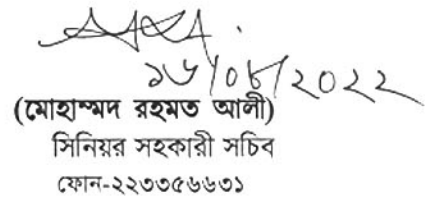 ১৬/০৮/২০২২
(মোহাম্মদ রহমত আলী)
সিনিয়র সহকারী সচিব
ফোন-২২৩৩৫৬৬৩১